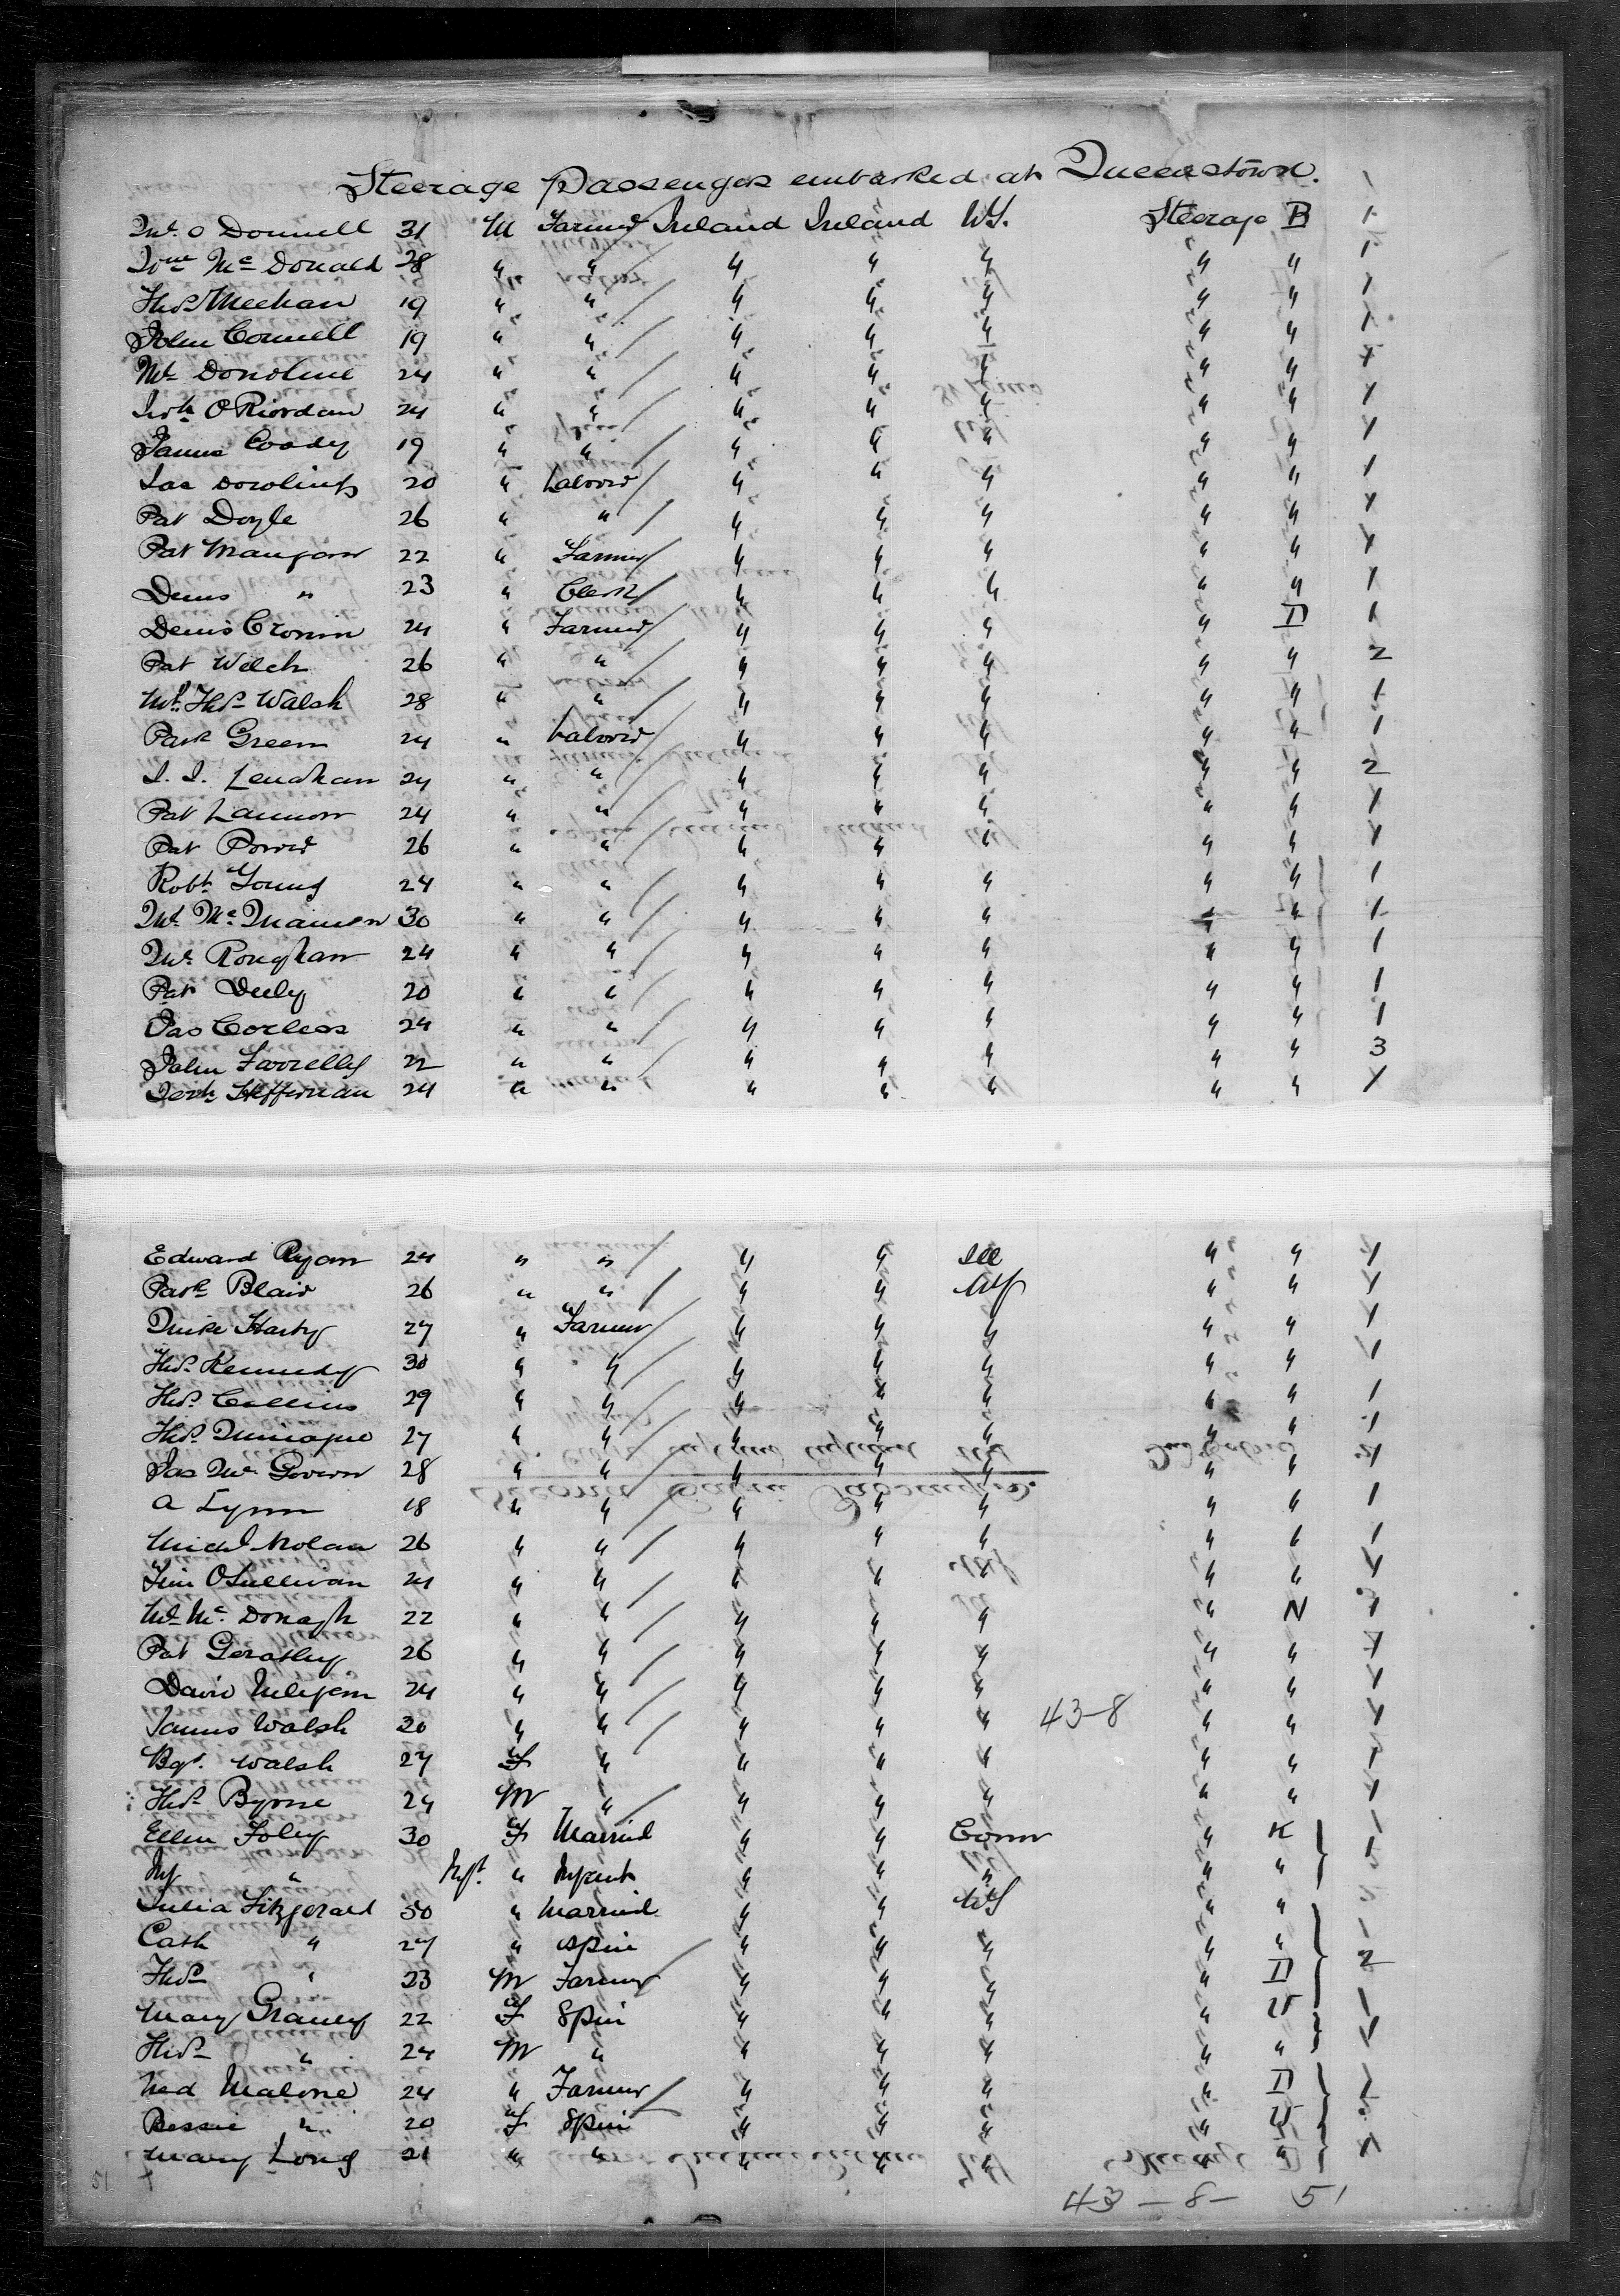 Steerage Passengers embarked at Queenstown.
O Donnell 31 M Farmer Ireland Ireland NY. Steerage B 1
Mc Donald 28 " " " " " " " 1
Thos Meehan 19 " " " " " " " 1
John Connell 19 " " " " " " " 1
Donohue 24 " " " " " " " 1
O Riordan 24 " " " " " " " 1
James Coady 19 " " " " " " " 1
Jas Dowling 20 " Laborer " " " " " 1
Pat Doyle 26 " " " " " " " 1
Pat Mangan 22 " Farmer " " " " " 1
Denis " 23 " Clerk " " " " " 1
Denis Cronin 24 " Farmer " " " " D 1
Pat Welch 26 " " " " " " " 2
Thos Walsh 28 " " " " " " " 1
Patk Green 24 " Laborer " " " " " 1
Lenahan 24 " " " " " " " 2
Pat Lannon 24 " " " " " " " 1
Pat Power 26 " " " " " " " 1
Robt Young 24 " " " " " " " 1
30 " " " " " " " 1
Roughan 24 " " " " " " " 1
Pat Deely 20 " " " " " " " 1
Jas Corless 24 " " " " " " " 1
John Farrelly 22 " " " " " " " 3
Heffernan 24 " " " " " " " 1
Edward Ryan 24 " " " " Ill " " 1
Patk Blair 26 " " " " NY " " 1
Mike Harty 27 " Farmer " " " " " 1
Thos Kennedy 30 " " " " " " " 1
Thos Collins 29 " " " " " " " 1
Thos 27 " " " " " " " 1
Jas Mc Govern 28 " " " " " " " 1
A Lynn 18 " " " " " " " 1
Michl Nolan 26 " " " " " " " 1
Tim O'Sullivan 21 " " " " " " " 1
Mc Donagh 22 " " " " " " N 1
Pat Gerathy 26 " " " " " " " 1
David 24 " " " " " " " 1
James Walsh 30 " " " " " 43-8 " " 1
Bgt. Walsh 27 F " " " " " " 1
Thos Byrne 24 M " " " " " " 1
Ellen Foley 30 F Married " " Conn " K 1
" Inft. " Infant " " " " "
Julia Fitzgerald 50 " Married " " NY " "
Cath " 27 " Spin " " " " "
Thos " 23 M Farmer " " " " D 2
Mary Graney 22 F Spin " " " "
Thos " 24 M " " " " " " 1
Ned Malone 24 " Farmer " " " " D
Bessie " 20 F Spin " " " "
Mary Long 21 " " " " " " " 1
43 - 8 - 51